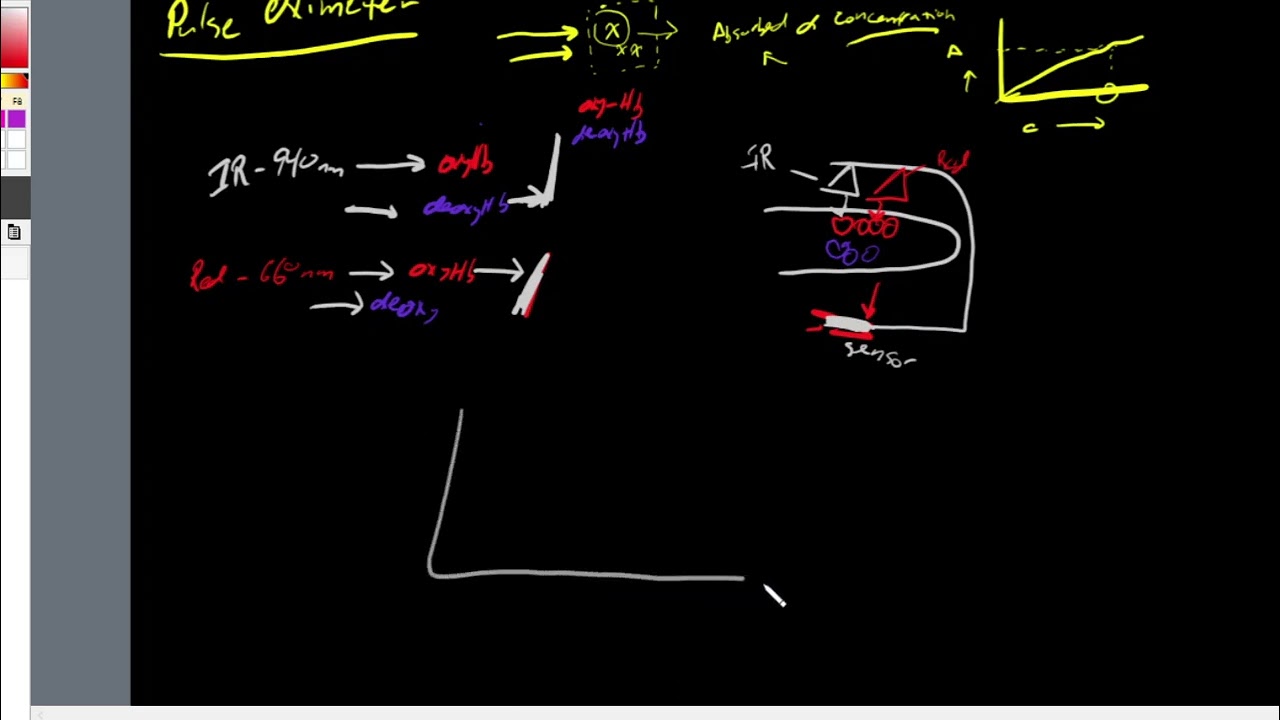 Pulse oximeter
x
x x
Absorbed α concentration
A
c
oxy-Hb
deoxyHb
IR - 940nm
oxyHb
deoxyHb
Red - 660nm
oxyHb
deoxy
IR
Red
sensor
F8